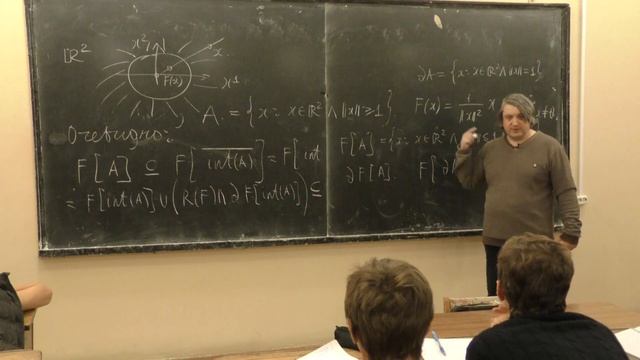 ℝ²
x²
x
F(x)
x¹
A = {x: x∈ℝ² ∧ ‖x‖≥1}
F[A] ⊆ F[int(A)‾] = F[int
= F[int(A)] ∪ (R(F) ∩ ∂F[int(A)]) ⊆
∂A = {x: x∈ℝ² ∧ ‖x‖=1}
F(x) = 1/‖x‖² x
F[A] = {x: x∈ℝ² ∧
∂F[A]
F[∂